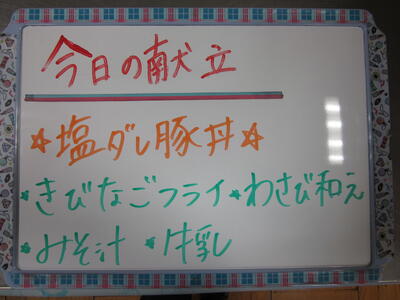 今日の献立
☆塩ダレ豚丼☆
*きびなごフライ *わさび和え
*みそ汁 *牛乳